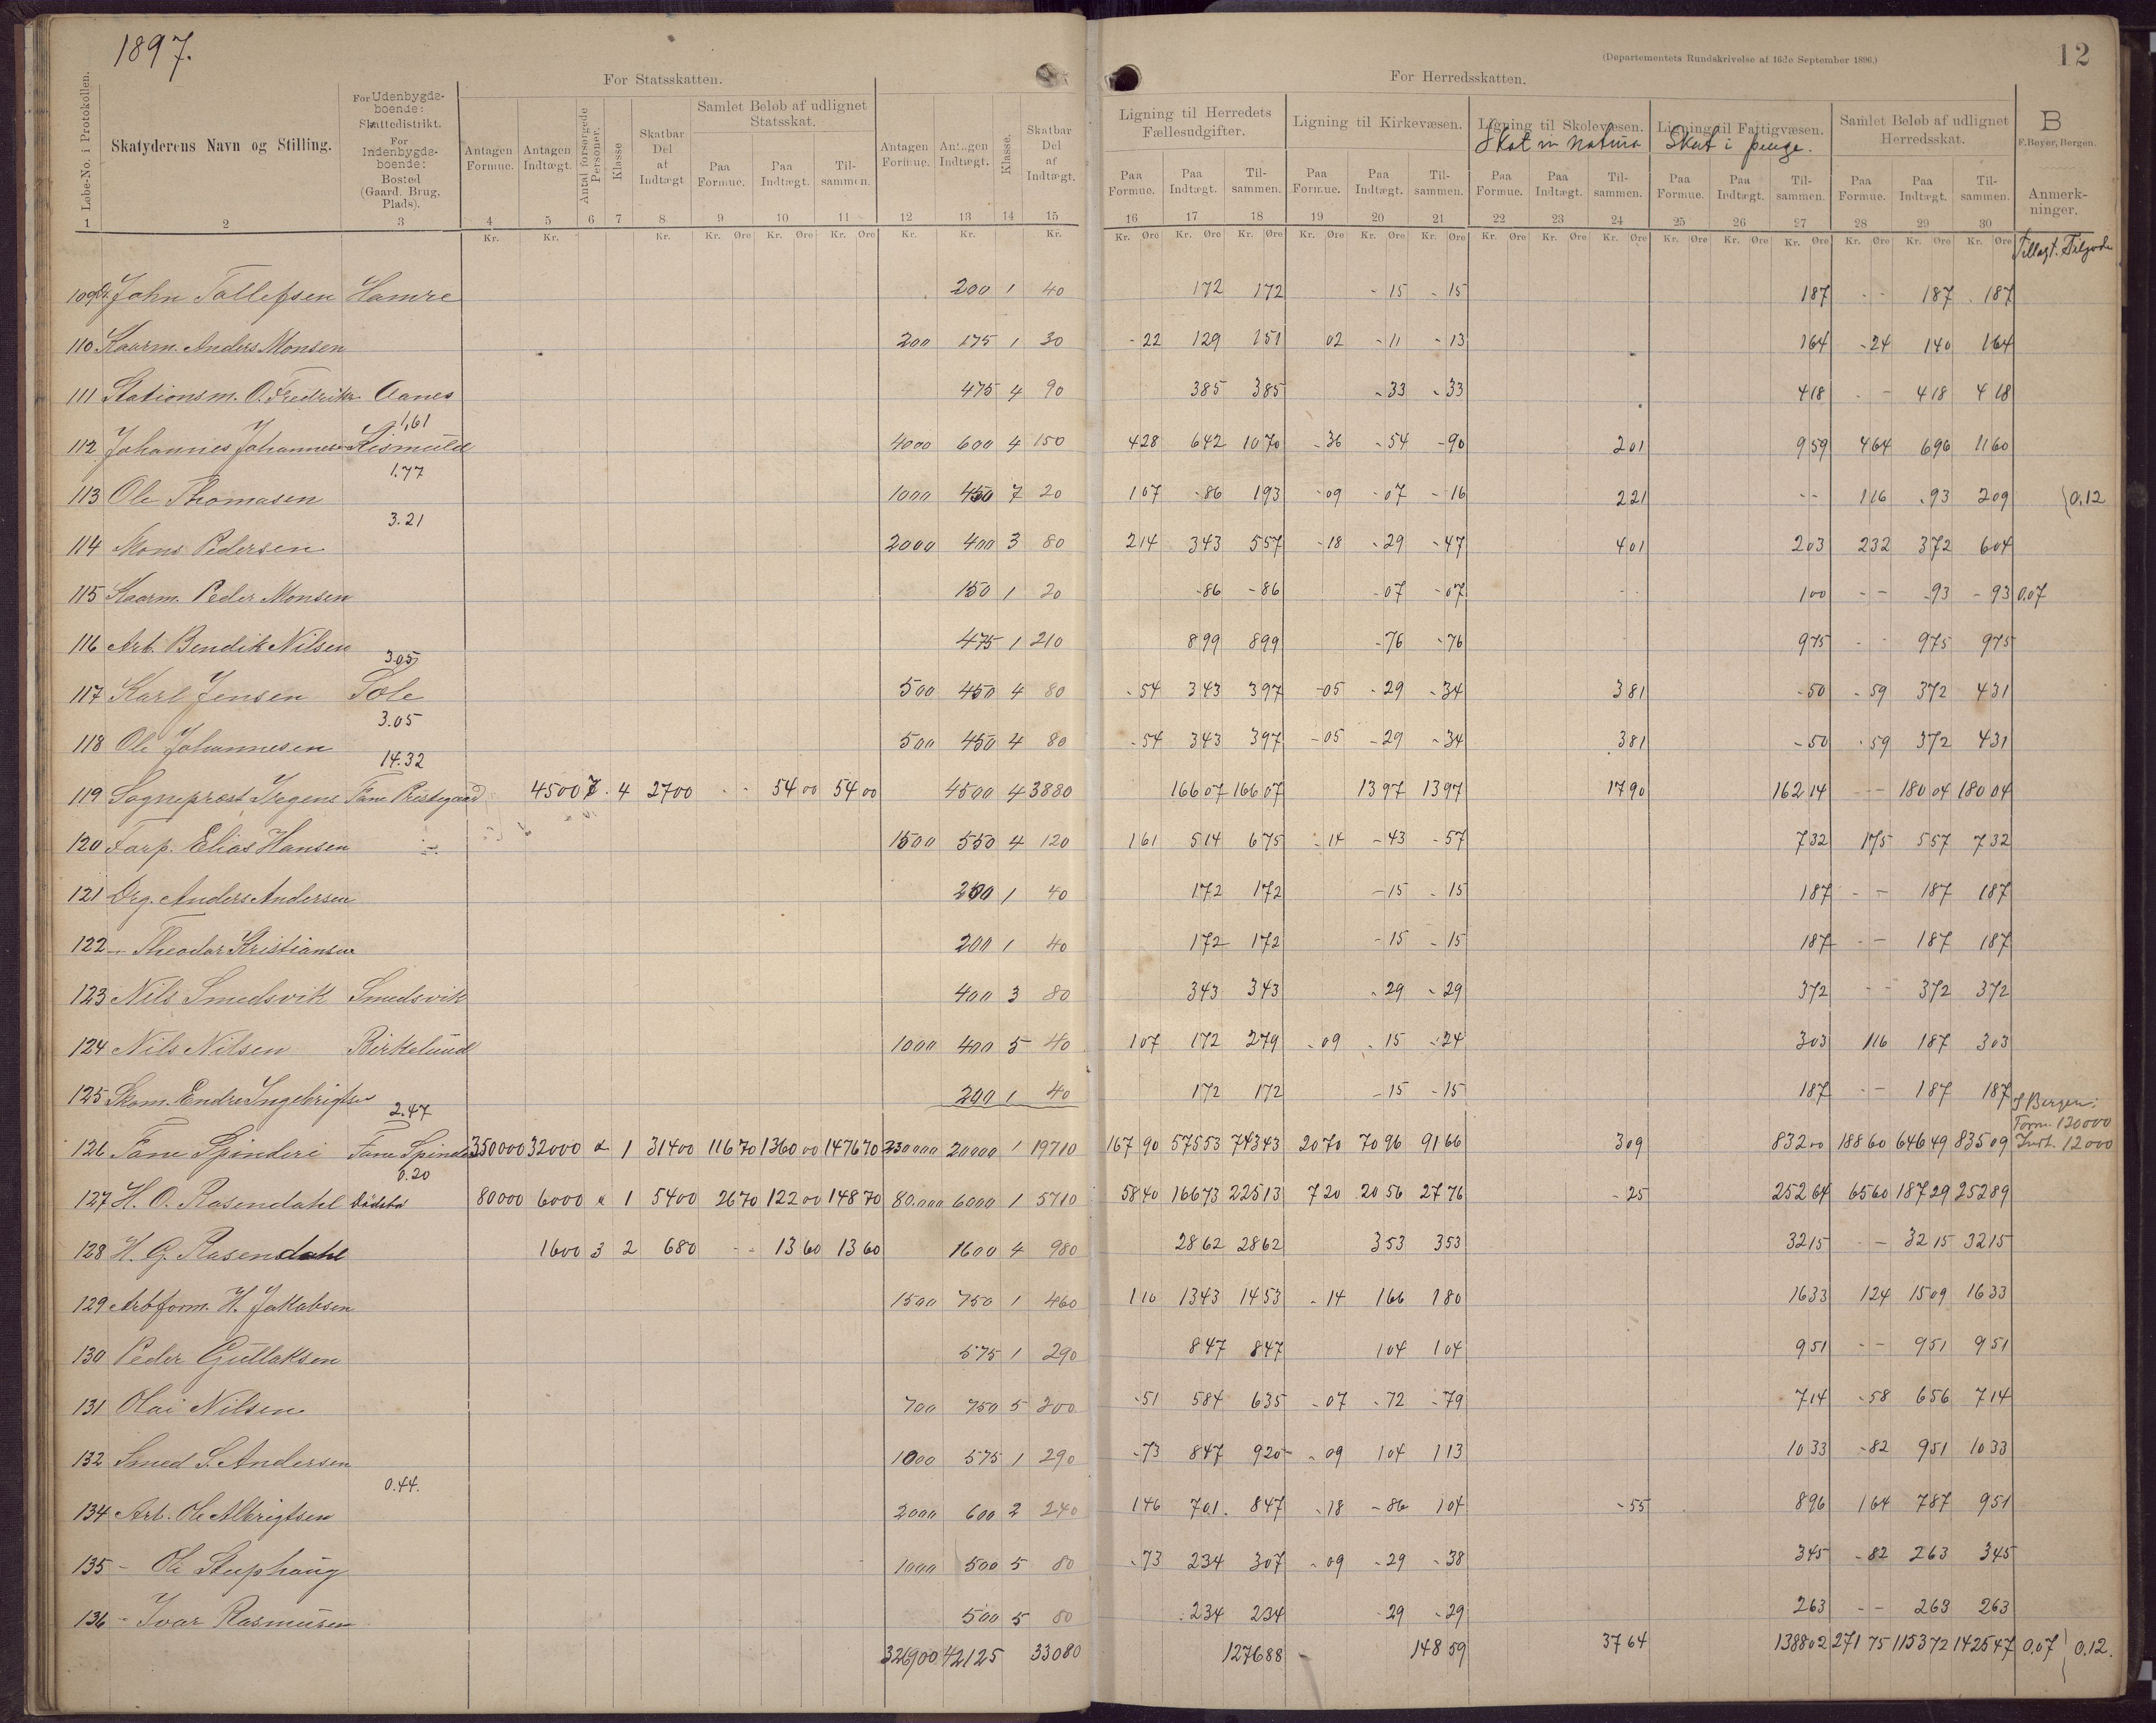 1897.
12
(Departementets Rundskrivelse af 16de September 1896.)
For Statsskatten.
For Herredsskatten.
Løbe-No. i Protokollen.
Skatyderens Navn og Stilling.
For Udenbygds-boende:
Skattedistrikt.
For Indenbygds-boende:
Bosted (Gaard. Brug. Plads).
Antagen Formue. Antagen Indtægt. Antal forsørgede Personer. Klasse Skatbar Del af Indtægt
Samlet Beløb af udlignet Statsskat.
Paa Formue. Paa Indtægt. Til-sammen.
Antagen Formue. Antagen Indtægt. Klasse. Skatbar Del af Indtægt.
Ligning til Herredets Fællesudgifter. Ligning til Kirkevæsen. Ligning til Skolevæsen. Ligning til Fattigvæsen. Samlet Beløb af udlignet Herredsskat.
Skat in natura Skat i penge.
B
F. Beyer, Bergen.
Paa Formue. Paa Indtægt. Til-sammen. Paa Formue. Paa Indtægt. Til-sammen. Paa Formue. Paa Indtægt. Til-sammen. Paa Formue. Paa Indtægt. Til-sammen. Paa Formue. Paa Indtægt. Til-sammen. Anmerk-ninger.
1 2 3 4 5 6 7 8 9 10 11 12 13 14 15 16 17 18 19 20 21 22 23 24 25 26 27 28 29 30
Kr. Kr. Kr. Kr. Øre Kr. Øre Kr. Øre Kr. Kr. Kr. Kr. Øre Kr. Øre Kr. Øre Kr. Øre Kr. Øre Kr. Øre Kr. Øre Kr. Øre Kr. Øre Kr. Øre Kr. Øre Kr. Øre Kr. Øre Kr. Øre Kr. Øre
Tillagt. Tilgode
109 John Tollefsen Hamre 200 1 40 172 172 - 15 - 15 187 - - 187 187
110 Kaarm. Anders Monsen 200 175 1 30 - 22 129 151 02 - 11 - 13 164 - 24 140 164
111 Stationsm. O. Fredriks. Aanes 475 4 90 385 385 - 33 - 33 418 - - 418 418
1,61
112 Johannes Johannesen Lismuld 4000 600 4 150 428 642 1070 - 36 - 54 - 90 201 959 464 696 1160
1.77
113 Ole Thomasen 1000 450 7 20 107 - 86 193 - 09 - 07 - 16 221 - - 116 - 93 209 0.12
3.21
114 Mons Pedersen 2000 400 3 80 214 343 557 - 18 - 29 - 47 401 203 232 372 604
115 Kaarm. Peder Monsen 150 1 20 - 86 - 86 - 07 - 07 100 - - - 93 - 93 0.07
116 Arb. Bendik Nilsen 475 1 210 899 899 - 76 - 76 975 - - 975 975
3.05
117 Karl Jensen Tole 500 450 4 80 - 54 343 397 - 05 - 29 - 34 381 - 50 - 59 372 431
3.05
118 Ole Johannesen 500 450 4 80 - 54 343 397 - 05 - 29 - 34 381 - 50 - 59 372 431
14.32
119 Sogneprest Irgens Fane Prestegaard 4500 7 4 2700 - - 54 00 54 00 4500 4 3880 166 07 166 07 13 97 13 97 17 90 162 14 - - 180 04 180 04
120 Farp. Elias Hansen 1500 550 4 120 161 514 675 - 14 - 43 - 57 732 175 557 732
121 Drg. Anders Andersen 200 1 40 172 172 - 15 - 15 187 - - 187 187
122 - Theodor Kristiansen 200 1 40 172 172 - 15 - 15 187 - - 187 187
123 Nils Smedsvik Smedsvik 400 3 80 343 343 - 29 - 29 372 - - 372 372
124 Nils Nilsen Birkelund 1000 400 5 40 107 172 279 - 09 - 15 - 24 303 116 187 303
125 Skom. Endre Ingebrigtsen 200 1 40 172 172 - 15 - 15 187 - - 187 187
2.47
I Bergen:
Form. 120000
126 Fane Spinderi Fane Spinderi 350000 32000 α 1 31400 116 70 1360 00 1476 70 230000 20000 1 19710 167 90 575 53 743 43 20 70 70 96 91 66 309 832 00 188 60 646 49 835 09 Indt. 12000
0.20
127 H. O. Rosendahl Dødsbo 80000 6000 α 1 5400 26 70 122 00 148 70 80.000 6000 1 5710 58 40 166 73 225 13 7 20 20 56 27 76 - 25 252 64 65 60 187 29 252 89
128 H. G. Rosendahl 1600 3 2 680 - - 13 60 13 60 1600 4 980 28 62 28 62 353 353 32 15 - - 32 15 32 15
129 Arbform. H. Jakobsen 1500 750 1 460 110 1343 1453 - 14 166 180 1633 124 1509 1633
130 Peder Gullaksen 575 1 290 847 847 104 104 951 - - 951 951
131 Olai Nilsen 700 750 5 200 - 51 584 635 - 07 - 72 - 79 714 - 58 656 714
132 Smed S. Andersen 1000 575 1 290 - 73 847 920 - 09 104 113 1033 - 82 951 1033
0.44.
134 Arb. Ole Albrigtsen 2000 600 2 240 146 701 847 - 18 - 86 104 - 55 896 164 787 951
135 - Ole Stuphaug 1000 500 5 80 - 73 234 307 - 09 - 29 - 38 345 - 82 263 345
136 - Ivar Rasmusen 500 5 80 234 234 - 29 - 29 263 - - 263 263
326900 42125 33080 1276 88 148 59 37 64 1388 02 271 75 1153 72 1425 47 0.07 0.12.